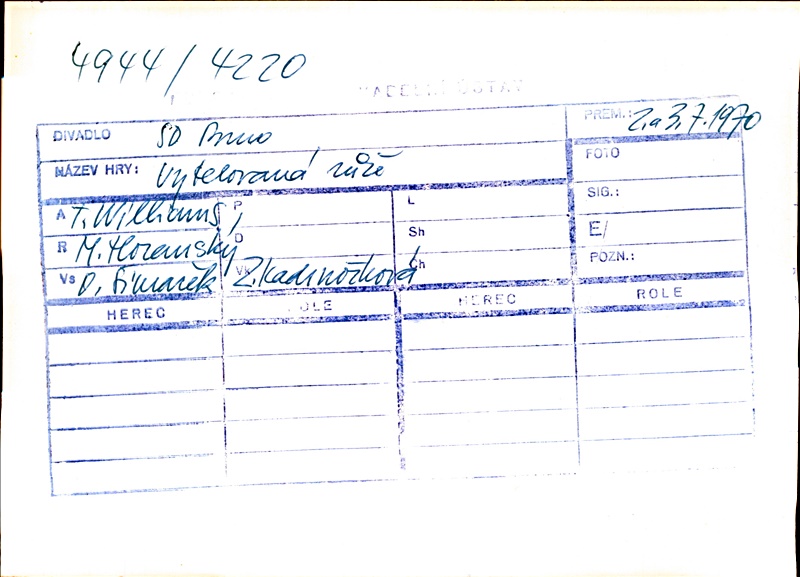 4944/4220
DIVADELNÍ ÚSTAV
DIVADLO SD Brno PREM.: 2. a 3.7.1970
NÁZEV HRY: Vytetovaná růže FOTO
A T. Williams, P L SIG.:
R M. Horanský D Sh E/
Vs O. Šimáček Vk Z. Kadrnožková Ch POZN.:
HEREC ROLE HEREC ROLE